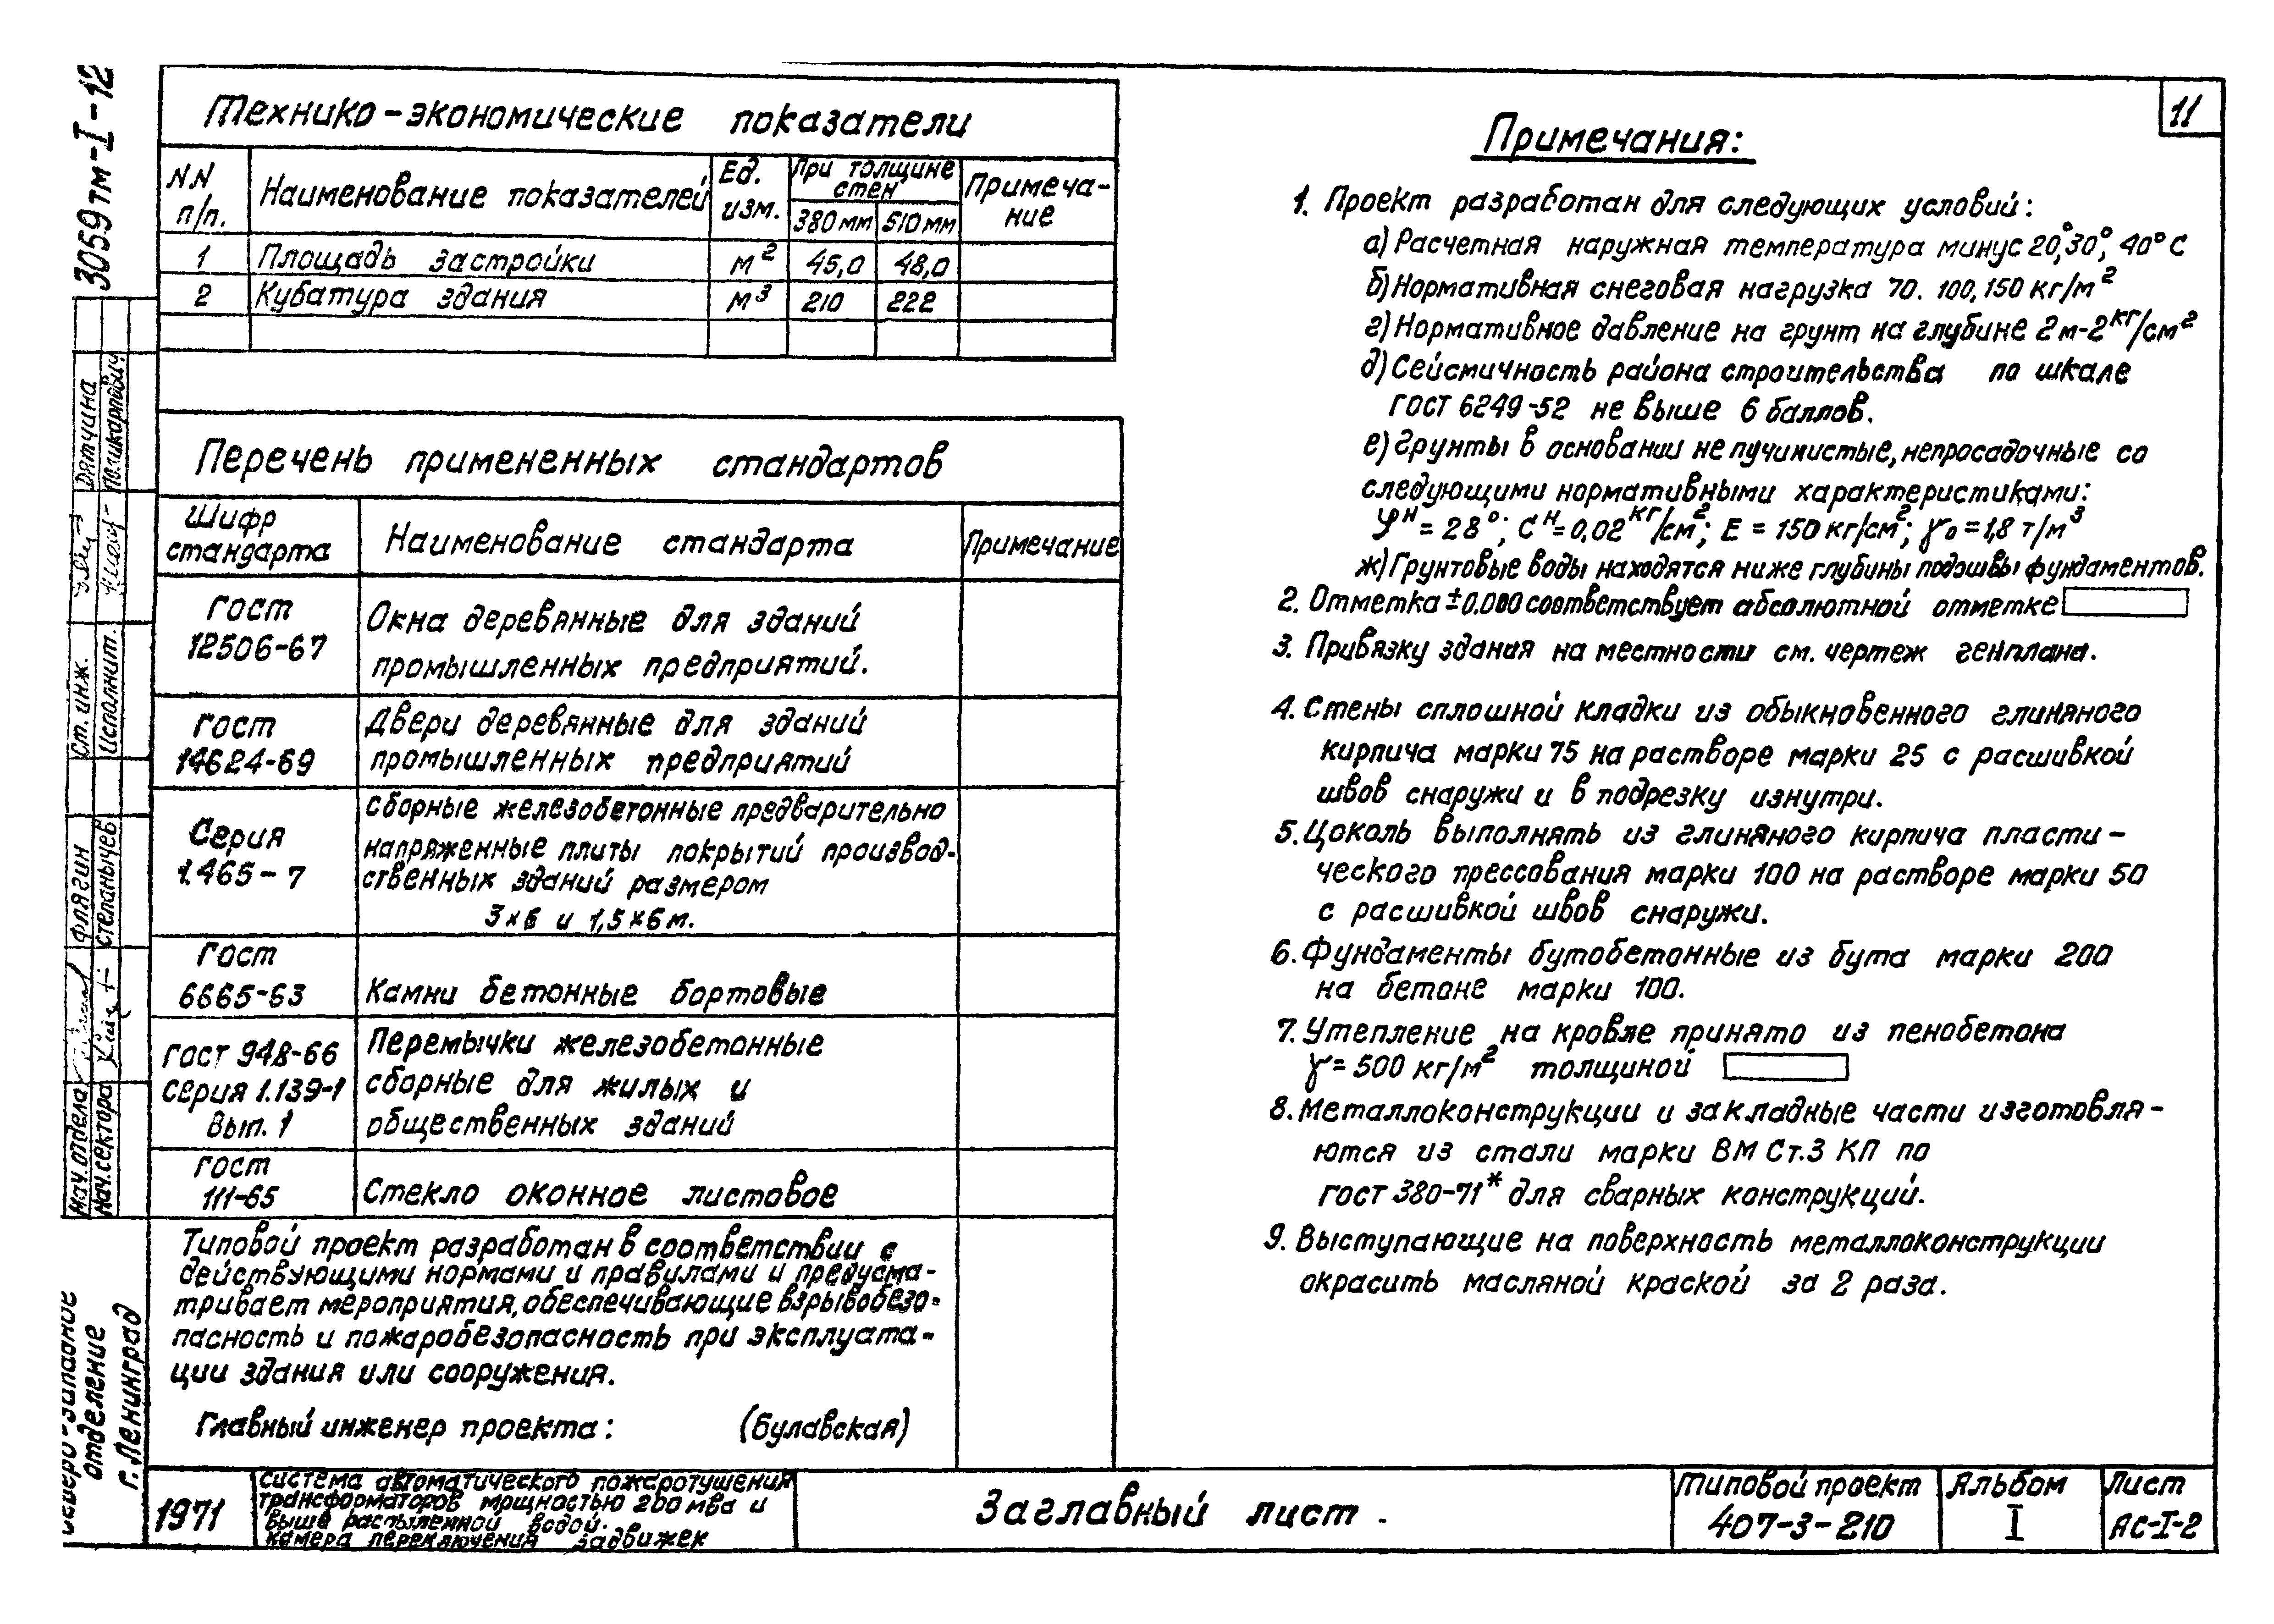 3059тм-I-12
11
Технико-экономические показатели
N.N п/п.
Наименование показателей
Ед. изм.
При толщине стен
380мм 510мм
Примечание
1 Площадь застройки м² 45,0 48,0
2 Кубатура здания м³ 210 222
Перечень примененных стандартов
Шифр стандарта
Наименование стандарта
Примечание
ГОСТ 12506-67
Окна деревянные для зданий
промышленных предприятий.
ГОСТ 14624-69
Двери деревянные для зданий
промышленных предприятий
Серия 1.465-7
Сборные железобетонные предварительно
напряженные плиты покрытий производ-
ственных зданий размером
3×6 и 1,5×6м.
ГОСТ 6665-63
Камни бетонные бортовые
ГОСТ 948-66
Серия 1.139-1
Вып. 1
Перемычки железобетонные
сборные для жилых и
общественных зданий
ГОСТ 111-65
Стекло оконное листовое
Типовой проект разработан в соответствии с
действующими нормами и правилами и предусма-
тривает мероприятия, обеспечивающие взрывобезо-
пасность и пожаробезопасность при эксплуата-
ции здания или сооружения.
Главный инженер проекта: (Булавская)
Примечания:
1. Проект разработан для следующих условий:
а) Расчетная наружная температура минус 20°, 30°, 40°С
б) Нормативная снеговая нагрузка 70. 100, 150 кг/м²
г) Нормативное давление на грунт на глубине 2м-2кг/см²
д) Сейсмичность района строительства по шкале
ГОСТ 6249-52 не выше 6 баллов.
е) Грунты в основании не пучинистые, непросадочные со
следующими нормативными характеристиками:
φᴴ = 28°; Сᴴ = 0,02 кг/см²; Е = 150 кг/см²; γ₀ = 1,8 т/м³
ж) Грунтовые воды находятся ниже глубины подошвы фундаментов.
2. Отметка ±0.000 соответствует абсолютной отметке
3. Привязку здания на местности см. чертеж генплана.
4. Стены сплошной кладки из обыкновенного глиняного
кирпича марки 75 на растворе марки 25 с расшивкой
швов снаружи и в подрезку изнутри.
5. Цоколь выполнять из глиняного кирпича пласти-
ческого прессования марки 100 на растворе марки 50
с расшивкой швов снаружи.
6. Фундаменты бутобетонные из бута марки 200
на бетоне марки 100.
7. Утепление на кровле принято из пенобетона
γ = 500 кг/м² толщиной
8. Металлоконструкции и закладные части изготовля-
ются из стали марки ВМ Ст.3 КП по
ГОСТ 380-71* для сварных конструкций.
9. Выступающие на поверхность металлоконструкции
окрасить масляной краской за 2 раза.
Нач. отдела Флягин
Нач. сектора Степанычев
Ст. инж. Вятчина
Исполнит. Поликарпович
отделение
г. Ленинград
1971
Система автоматического пожаротушения
трансформаторов мощностью 200 мва и
выше распыленной водой.
Камера переключения задвижек
Заглавный лист.
Типовой проект
407-3-210
Альбом
I
Лист
АС-I-2